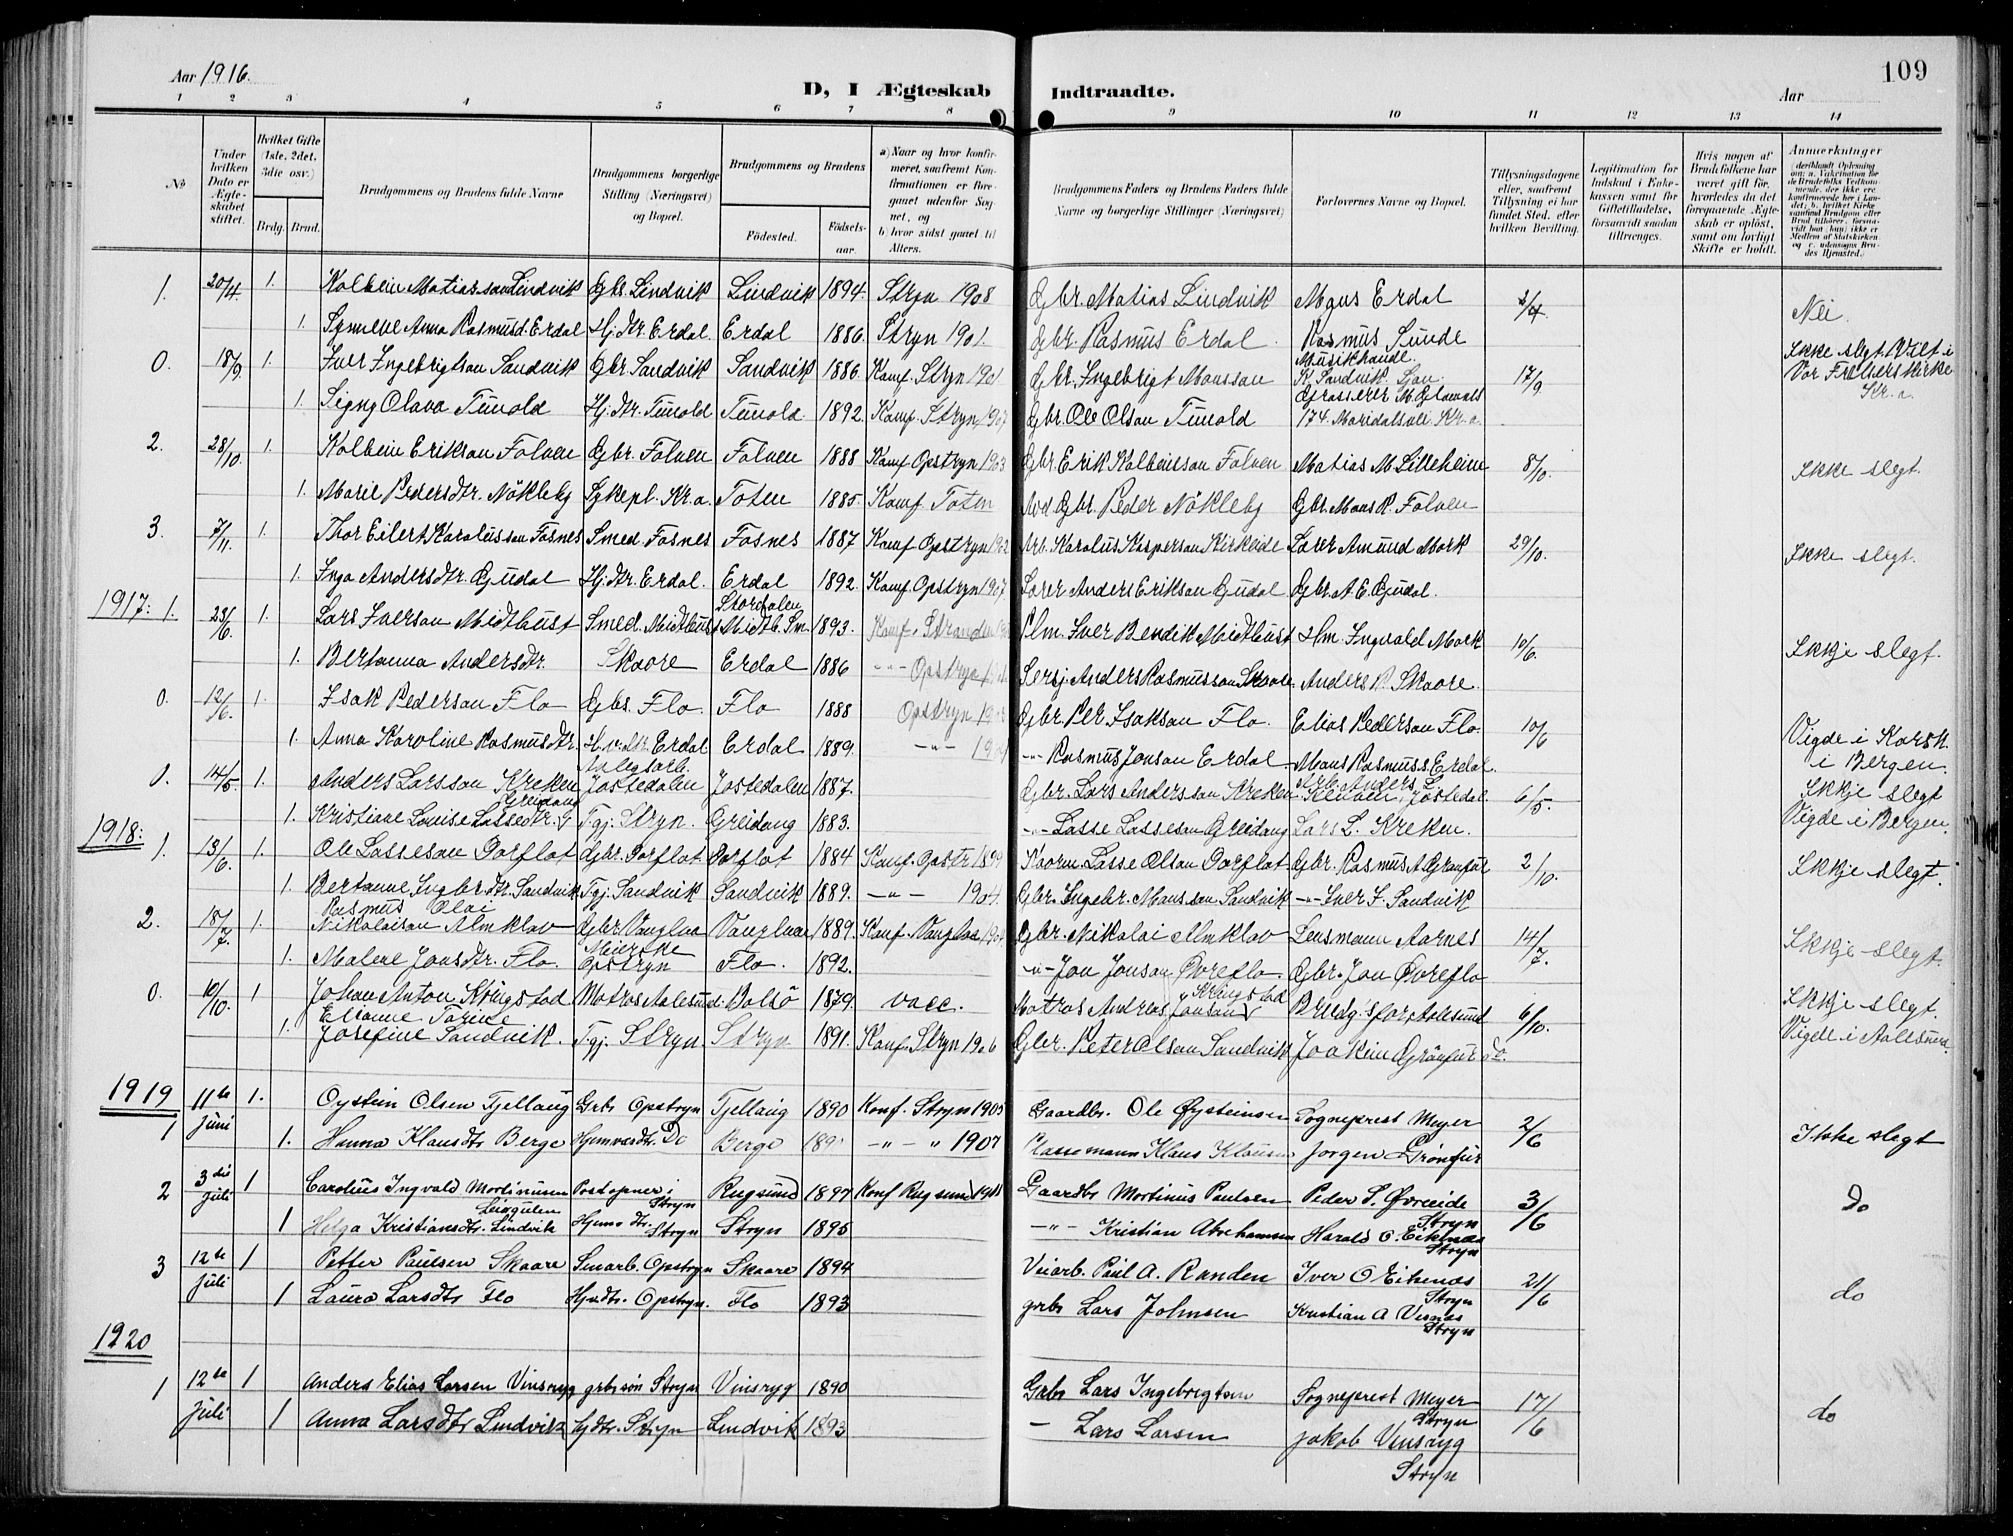 109
Aar 1916.
D, I Ægteskab Indtraadte.
Aar
1 2 3 4 5 6 7 8 9 10 11 12 13 14
No
Under hvilken Dato er Ægteskabet stiftet.
Hvilket Gifte (1ste, 2det, 3die osv.)
Brdg. Brud.
Brudgommens og Brudens fulde Navne
Brudgommens borgerlige Stilling (Næringsvei) og Bopæl.
Brudgommens og Brudens
Fødested. Fødselsaar.
a) Naar og hvor konfirmeret, saafremt Konfirmationen er foregaaet udenfor Sognet, og
b) hvor sidst gaaet til Alters.
Brudgommens Faders og Brudens Faders fulde Navne og borgerlige Stillinger (Næringsvei)
Forlovernes Navne og Bopæl.
Tillysningsdagene eller, saafremt Tillysning ei har fundet Sted, efter hvilken Bevilling.
Legitimation for Indskud i Enkekassen samt for Giftetilladelse, forsaavidt saadan tiltrænges.
Hvis nogen af Brudefolkene har været gift før, hvorledes da det foregaaende Ægteskab er opløst, samt om lovligt Skifte er holdt.
Anmærkninger
1. 20/4. 1. Kolbein Matiasson Lindvik Gbr. Lindvik Lindvik 1894. Stryn 1908 Gbr. Matias Lindvik Magus Erdal 2/4. Nei.
1. Synneve Anna Rasmusd. Erdal Hj.dtr. Erdal. Erdal 1886. Stryn 1901. Gbr. Rasmus Erdal. Rasmus Sunde
0. 18/9. 1. Iver Ingebrigtson Sandvik Gbr. Sandvik Sandvik 1886. Konf. Stryn 1901 Gbr. Ingebrigt Monsson Musikhandl. K. Sandvik. 17/9. Ikke slegt. Viet i Vor Frelsers Kirke Kr.a.
1. Signy Olava Tunold Hj.dtr. Tunold Tunold 1892. Konf. Stryn 1907 Gbr. Ole Olson Tunold 174. Maridalsvei. Kr.a.
2. 28/10. 1. Kolbein Erikson Folven Gbr. Folven Folven 1888 Konf. Opstryn 1903 Gbr. Erik Kolbeinson Folven Matias M Lilleheim 8/10. Ikke slegt.
1. Marie Pedersdtr. Nökleby Sykepl. Kr.a. Toten 1885. Konf. Toten Gbr. Peder Nökleby Gbr. Mons R. Folven
3. 7/11. 1. Thor Eilert Karolusson Fosnes Smed. Fosnes Fosnes 1887 Konf Opstryn 1902 Arb. Karolus Kasperson Kirkeide Lærer Amund Mork 29/10. Ikke slegt.
1. Inga Andersdtr. Gjudal Hj.dtr. Erdal. Erdal 1892. Konf. Opstryn 1907 Lærer Anders Erikson Gjudal Gbr. A. E. Gjudal.
1917: 1. 23/6. 1. Lars Iverson Midthust Smed. Midthust Stordalen Midtb. Sm. 1893. Konf. Stranden Iver Bendik Midthust Hm. Ingvald Mork 10/6. Ikkje slegt.
1. Bertanna Andersdtr. Skaare Erdal 1886 -"- Opstryn Sersj. Anders Rasmusson Skaare. Anders R Skaare.
0. 12/6. 1. Isak Pederson Flo Gbr. Flo. Flo 1888 Opstryn Gbr. Per Isakson Flo. Elias Pederson Flo. 10/6 Vigde i Korsk. i Bergen.
1. Anna Karoline Rasmusdtr. H.v.dtr. Erdal Erdal 1889. -"- -"- Rasmus Jonson Erdal Mons Rasmuss. Erdal.
0. 14/5. 1. Anders Larsson Kreken Anlegsarb. Jostedalen Jostedalen 1887. Gbr. Lars Andersson Kreken Jostedal. 6/5. Ikkje slegt Vigde i Bergen.
1. Kristiane Louise Lassedtr. Greidung Tgj. Stryn. Greidung 1883. -"- Lasse Lasseson Greidung Lars L. Kreken.
1918: 1. 13/6. 1. Ole Lasseson Dorflot Gbr. Dorflot Dorflot 1884 Konf. Opstr. 1899 Lasse Olson Dorflot. Gbr. Rasmus A Grønfur 2/10. Ikkje slegt.
1. Bertanne Ingbr.dtr. Sandvik Tgj. Sandvik Sandvik 1889. -"- 1904. Gbr. Ingebr. Monsson Sandvik -"- Iver I. Sandvik
2. 18/7. 1. Rasmus Olai Nikolaison Almklov Gbr. Vanylva Vanylven 1889. Konf. Vanylva Gbr. Nikolai Almklov Lensmann Aarnes 14/7. Ikkje slegt.
1. Malene Jonsdtr. Flo. Meierske Opstryn Flo. 1892. -"- Jon Jonson Øvreflo. Gbr. Jon Øvreflo
0. 10/10. 1 Johan Anton Kringstad Matros Aalesund. Bolsö 1879. vacc. Matros Andreas Jonson Kringstad Aalesund 6/10. Ikkje slegt. Vigde i Aalesund.
1. Elianne Tarine Josefine Sandvik. Tgj. Stryn. Stryn 1891. Konf. Stryn 1906 Gbr. Peter Olson Sandvik Joakim Grönfur do.
1919 1 11te juni 1. Oystein Olsen Tjellaug Grbr Opstryn Tjellaug 1890 Konf. Stryn 1905 Gaardbr. Ole Øysteinsen Sogneprest Meyer 2/6 Ikke slegt
1. Hanna Klausdtr Berge Hjemvdtr. Do Berge -"- " 1907 Klaus Klausen Jorgen Grönfur
2 3die juli 1 Carolius Ingvald Mortinusen Leirgulen Postopner i Stryn Rugsund 1897 Konf Rugsund Gaardbr Mortinus Paulsen Peder S. Øvreeide Stryn 3/6 do
1 Helga Kristiansdtr. Lindvik Hjemdtr. Stryn Stryn 1895 -"- Kristian Abrahamsen Harald O. Eiknæs Stryn
3 12te juli 1 Petter Paulsen Skaare Smarb. Opstryn Skaare 1894 Veiarb. Paul A. Randen Iver O Eiknæs Stryn 21/6 do
1 Laura Larsdtr Flo Hjvdtr. Opstryn. Flo 1893 grbr Lars Johnsen Kristian A Visnes Stryn
1920
1 12te juli 1 Anders Elias Larsen Vinsryg grbrsön Stryn Vinsryg 1890 Grbr Lars Ingebrigtsen Sogneprest Meyer Stryn 17/6 do
1 Anna Larsdtr Lindvik hjdtr. Stryn Lindvik 1893 - Lars Larsen Jakob Vinsryg Stryn